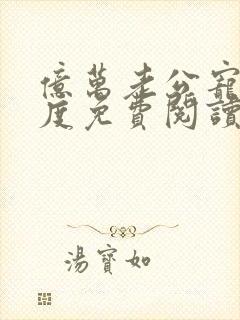 億萬老公寵
度免費閱讀
湯寶如